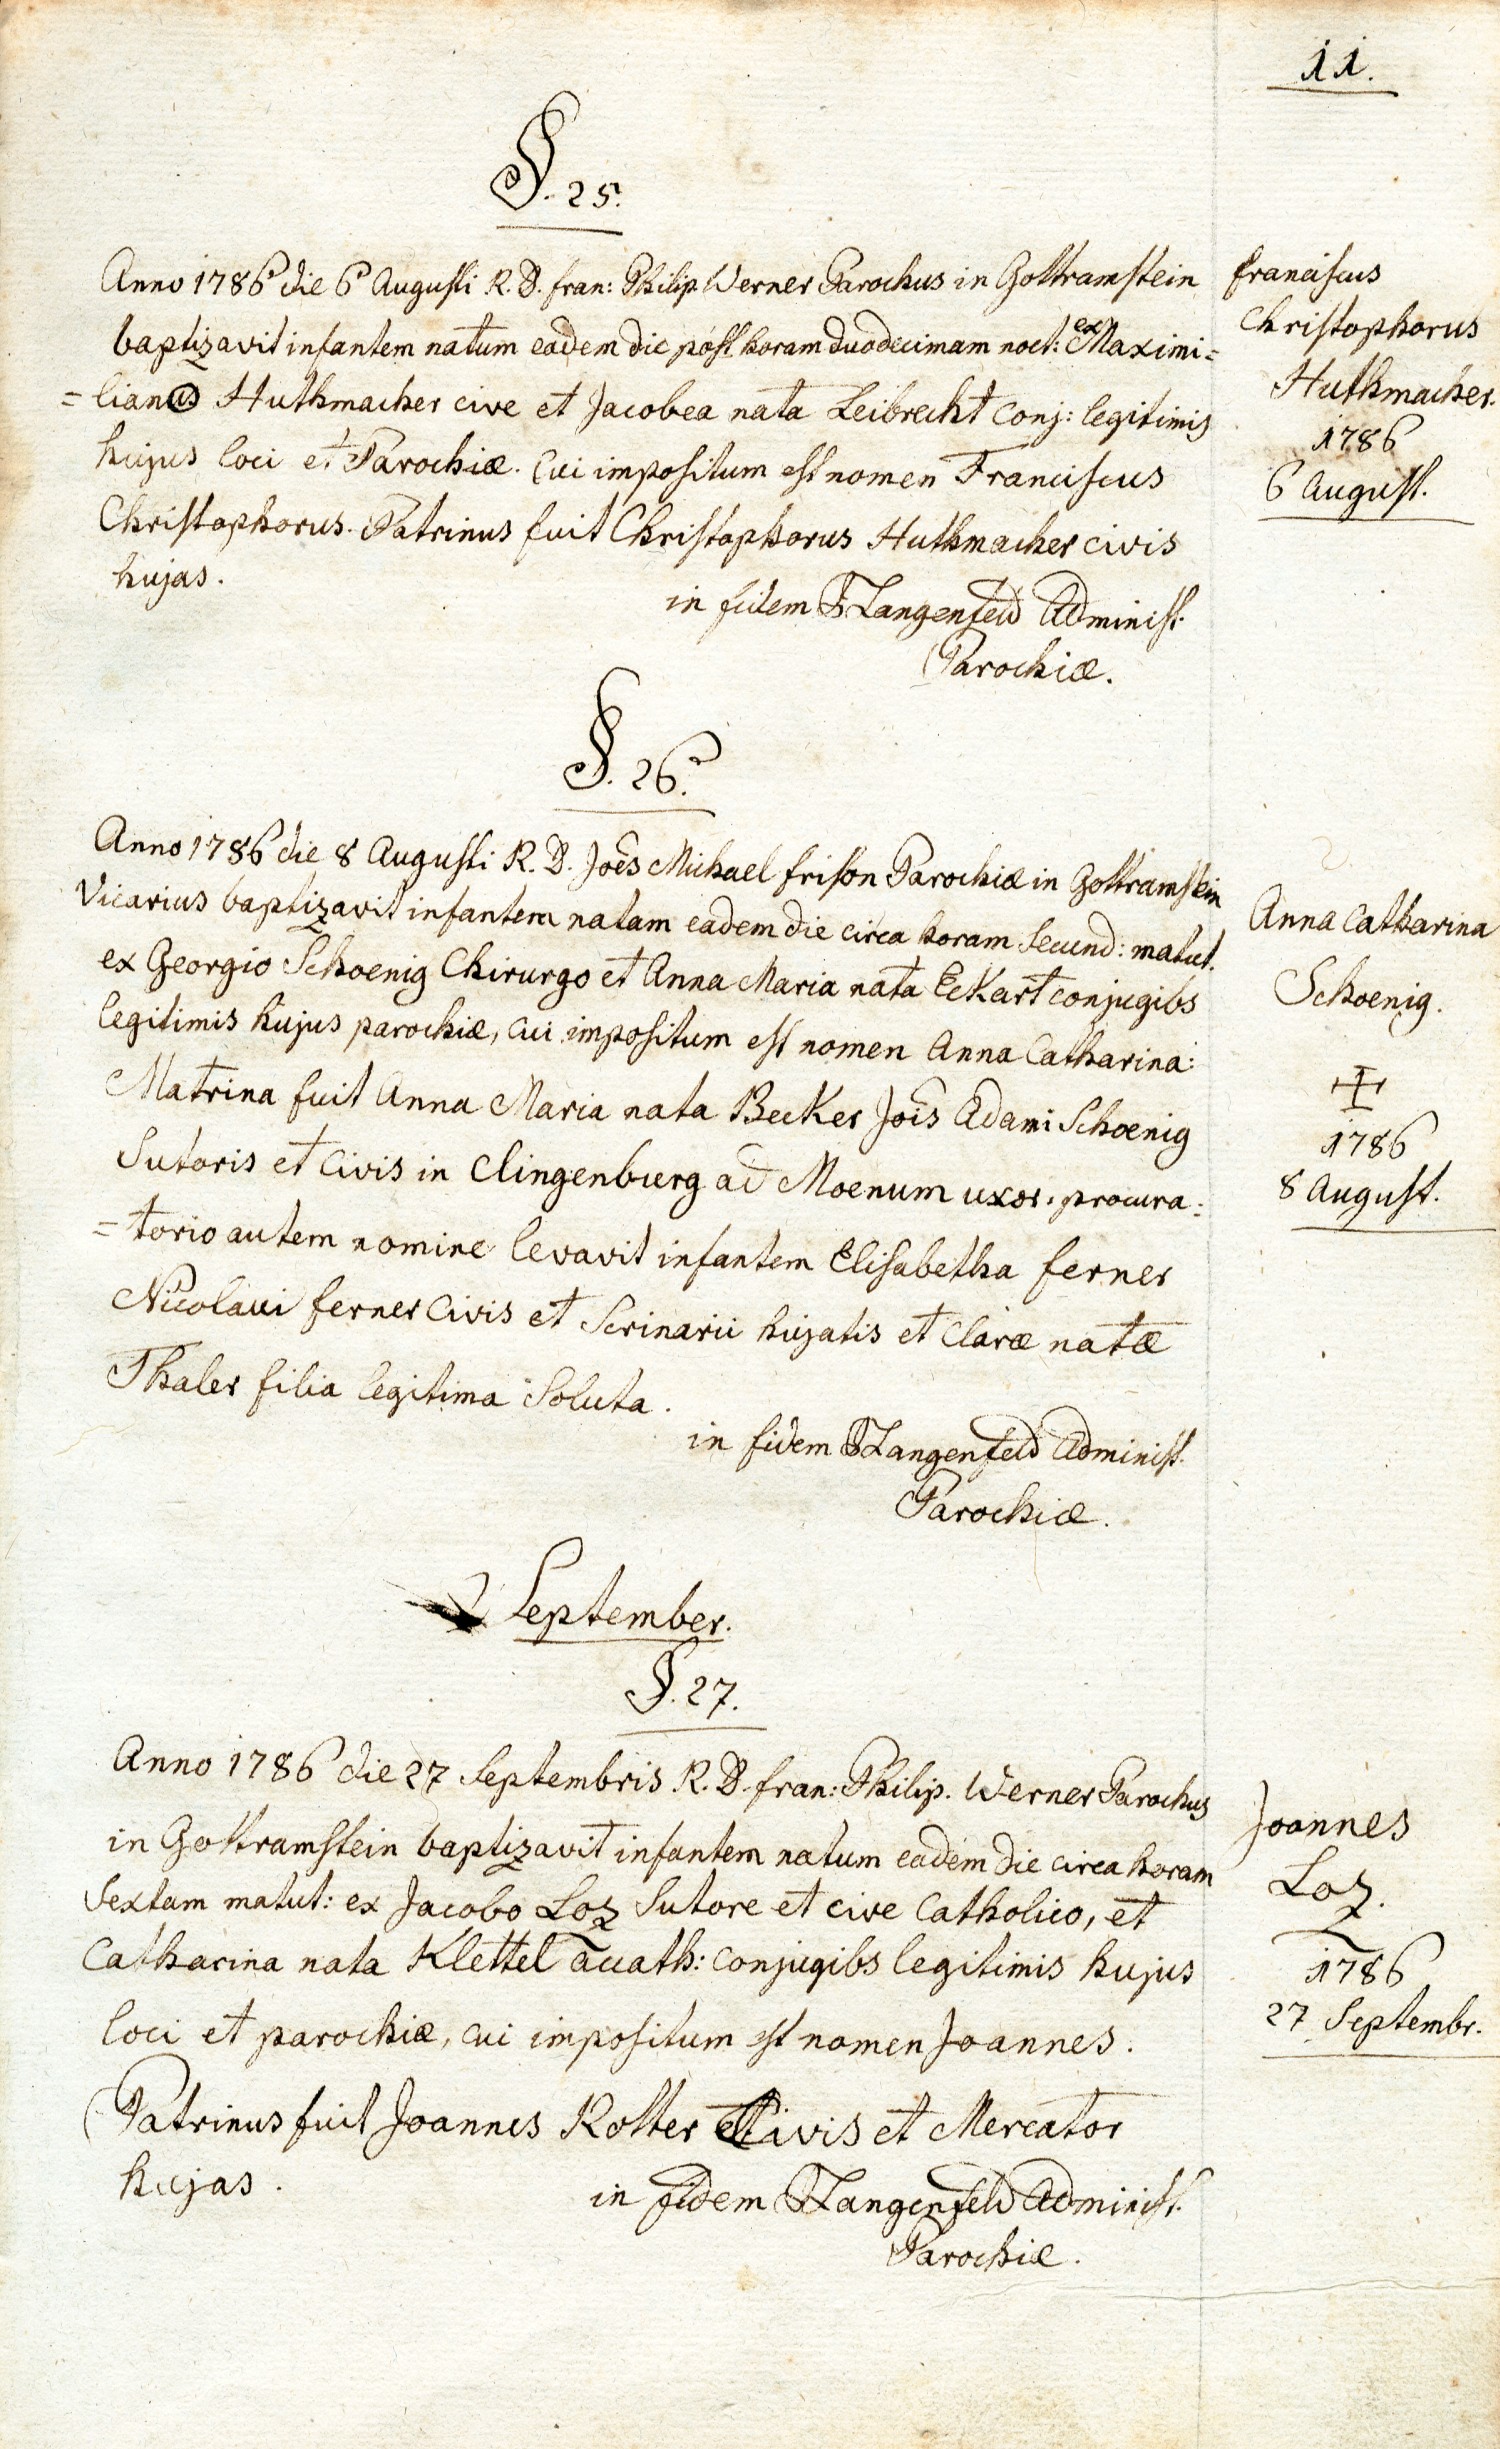 11.
§. 25.
Anno 1786 die 6 Augusti R. D. fran: Philip. Werner Parochus in Gottramstein
baptizavit infantem natum eadem die post horam duodecimam noct: ex Maximi=
=liano Huthmacher cive et Jacobea nata Leibrecht conj: legitimis
hujus loci et Parochiæ. Cui impositum est nomen Franciscus
Christophorus. Patrinus fuit Christophorus Huthmacher civis
hujas.
in fidem Langenfeld Administ.
Parochiæ.
franciscus
Christophorus
Huthmacher.
1786
6 August.
§. 26.
Anno 1786 die 8 Augusti R. D. Joes Michael frison Parochiæ in Gottramstein
Vicarius baptizavit infantem natam eadem die circa horam secund: matut.
ex Georgio Schoenig Chirurgo et Anna Maria nata Eckart conjugibs
legitimis hujus parochiæ, cui impositum est nomen Anna Catharina:
Matrina fuit Anna Maria nata Becker Jois Adami Schoenig
Sutoris et Civis in Clingenburg ad Moenum uxor. procura=
=torio autem nomine levavit infantem Elisabetha ferner
Nicolaui ferner Civis et Scrinarii hujatis et Claræ natæ
Thaler filia legitima soluta.
in fidem Langenfeld Administ.
Parochiæ.
Anna Catharina
Schoenig.
1786
8 August.
September.
§. 27.
Anno 1786 die 27 Septembris R. D. fran: Philip. Werner Parochus
in Gottramstein baptizavit infantem natum eadem die circa horam
Sextam matut: ex Jacobo Loz Sutore et cive Catholico, et
Catharina nata Klettel acath: conjugibs legitimis hujus
loci et parochiæ, cui impositum est nomen Joannes.
Patrinus fuit Joannes Rotter Civis et Mercator
hujas.
in fidem Langenfeld Administ.
Parochiæ.
Joannes
Loz.
1786
27 Septembr.